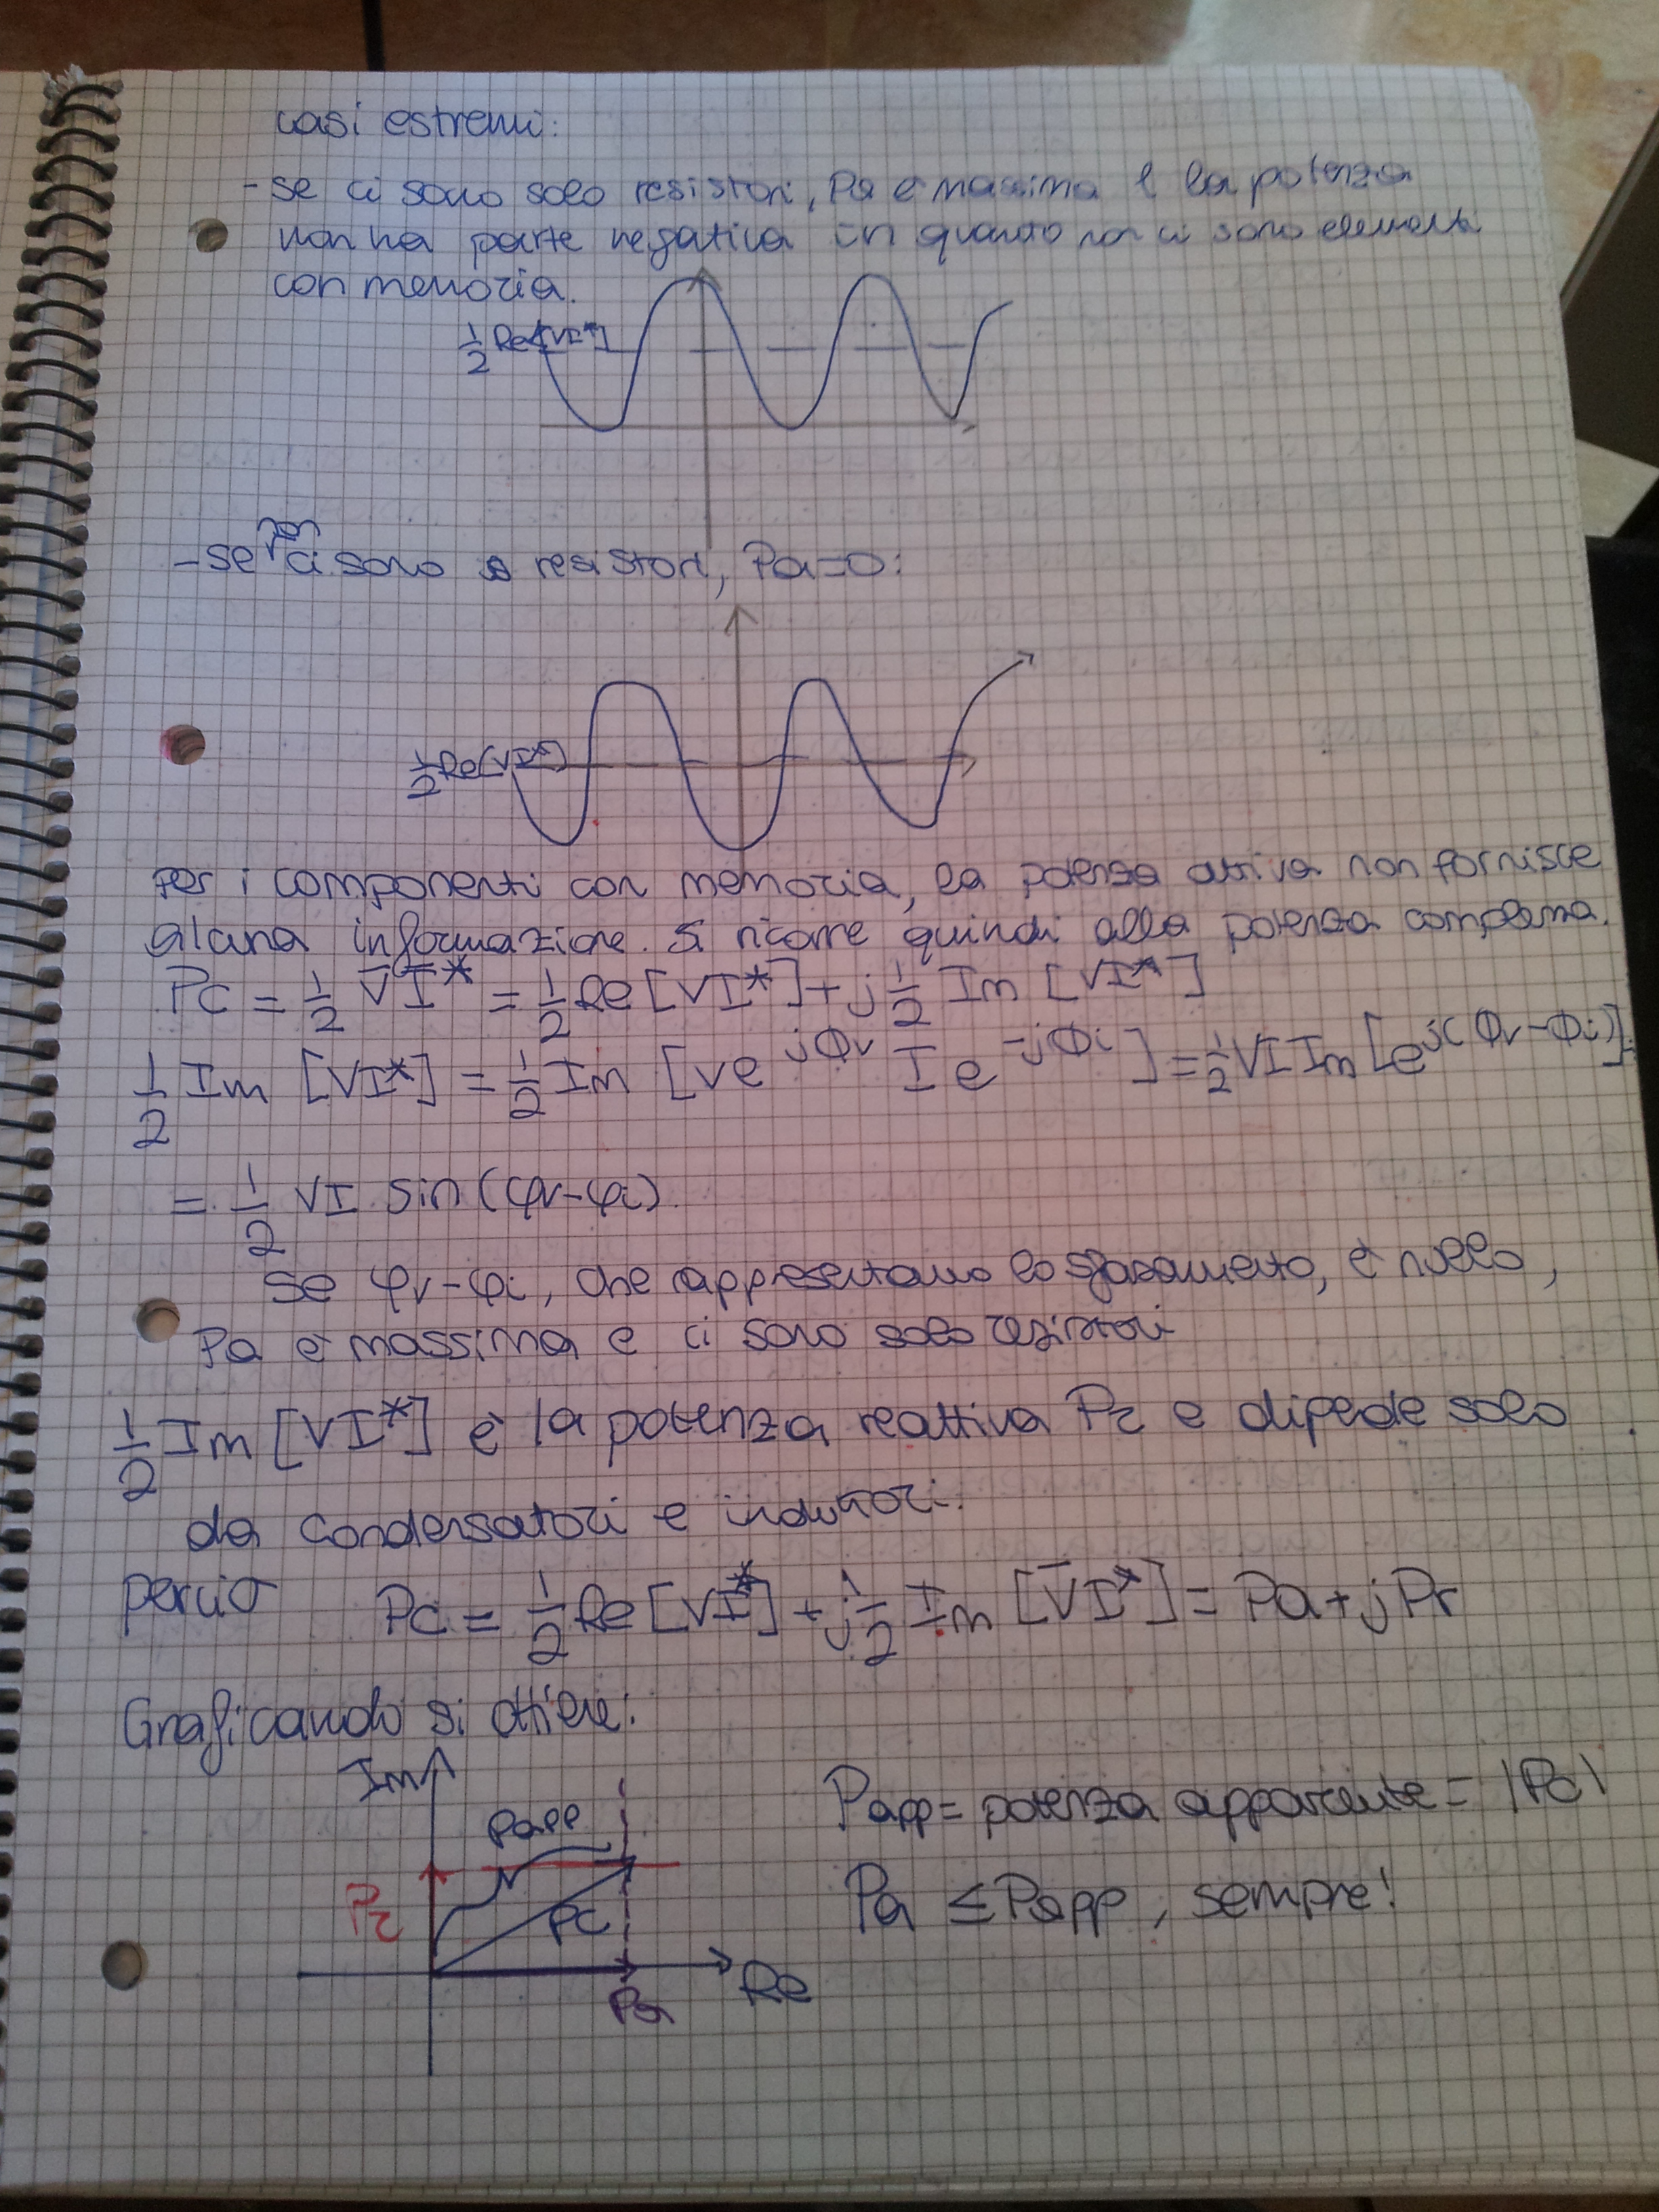 casi estremi:
- se ci sono solo resistori, Pa è massima e la potenza
non ha parte negativa in quanto non ci sono elementi
con memoria.
1/2 Re[VI*]
- se non ci sono resistori, Pa=0:
1/2 Re[VI*]
Per i componenti con memoria, la potenza attiva non fornisce
alcuna informazione. Si ricorre quindi alla potenza complessa.
Pc = 1/2 V̄Ī* = 1/2 Re[VI*] + j 1/2 Im [VI*]
1/2 Im [VI*] = 1/2 Im [ve^{jΦv} I e^{-jΦi}] = 1/2 VI Im [e^{j(Φv-Φi)}]=
= 1/2 VI sin(φv-φi)
Se φv-φi, che rappresentano lo sfasamento, è nullo,
Pa è massima e ci sono solo resistori
1/2 Im [VI*] è la potenza reattiva Pr e dipende solo
da condensatori e induttori.
perciò Pc = 1/2 Re [VI*] + j 1/2 Im [V̄I*] = Pa + jPr
Graficando si ottiene:
Im
Papp
Pr
Pc
Re
Pa
Papp = potenza apparente = |Pc|
Pa ≤ Papp, sempre!